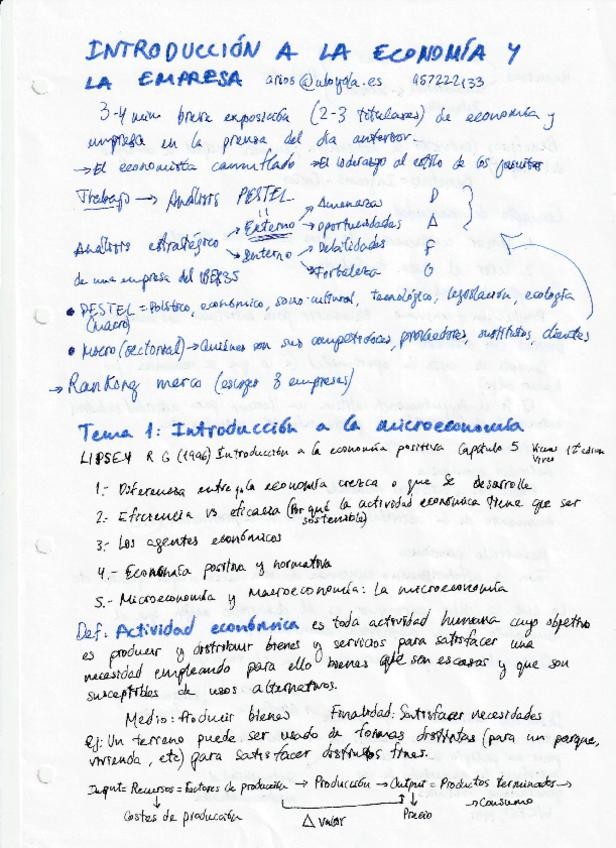 INTRODUCCIÓN A LA ECONOMÍA Y
LA EMPRESA arios@uloyola.es 957222133
3-4 min breve exposición (2-3 titulares) de economía y
empresa en la prensa del día anterior.
→ El economista camuflado → El liderazgo al estilo de los jesuitas
Trabajo → Análisis PESTEL
Análisis estratégico
de una empresa del IBEX35
Externo → Amenazas D
→ Oportunidades A
Interno → Debilidades F
→ Fortaleza O
• PESTEL = Político, económico, socio-cultural, tecnológico, legislación, ecología
(macro)
• Micro (sectorial) → Quiénes son sus competidores, proveedores, sustitutos, clientes
→ Ranking merco (escoger 3 empresas)
Tema 1: Introducción a la microeconomía
LIPSEY R G (1996) Introducción a la economía positiva Capítulo 5 Vicens Vives 12ª edición
1.- Diferencia entre q la economía crezca o que se desarrolle
2.- Eficiencia vs eficacia (Por qué la actividad económica tiene que ser
sostenible)
3.- Los agentes económicos
4.- Economía positiva y normativa
5.- Microeconomía y Macroeconomía: La microeconomía
Def: Actividad económica es toda actividad humana cuyo objetivo
es producir y distribuir bienes y servicios para satisfacer una
necesidad empleando para ello bienes que son escasos y que son
susceptibles de usos alternativos.
Medio: Producir bienes Finalidad: Satisfacer necesidades
Ej: Un terreno puede ser usado de formas distintas (para un parque,
vivienda, etc) para satisfacer distintos fines.
Input = Recursos = Factores de producción → Producción → Output = Productos terminados →
→ Consumo
Costes de producción Δ valor Precio